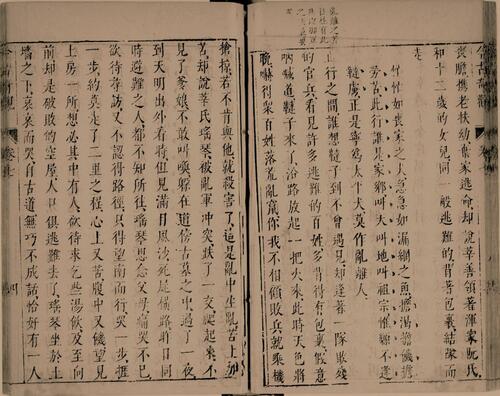 喪膽攜老扶幼棄家逃命却說莘善領著渾家阮氏
和十二歲的女兒同一般逃難的背著包裹結隊而
走
忙忙如喪家之犬急急如漏網之魚擔渴擔饑擔
勞苦此行誰是家鄉叫天叫地叫祖宗惟願不逢
韃虜正是寧爲太平犬莫作亂離人
正行之間誰想韃子到不曾遇見却逢著一隊敗殘
的官兵看見許多逃難的百姓多背得有包裹假意
吶喊道韃子來了沿路放起一把火來此時天色將
晚嚇得衆百姓落荒亂竄你我不相顧敗兵就乘機
搶掠若不肯與他就殺害了這是亂中生亂苦上加
苦却說莘氏瑤琴被亂軍冲突跌了一交爬起來不
見了爹娘不敢叫喚躲在道傍古墓之中過了一夜
到天明出外看時但見滿目風沙死屍橫路昨日同
時避難之人都不知所往瑤琴思念父母痛哭不已
欲待尋訪又不認得路徑只得望南而行哭一步捱
一步約莫走了二里之程心上又苦腹中又饑望見
土房一所想必其中有人欲待求乞些湯飲及至向
前却是破敗的空屋人口俱逃難去了瑤琴坐於土
墻之下哀哀而哭自古道無巧不成話恰好有一人
今古奇觀